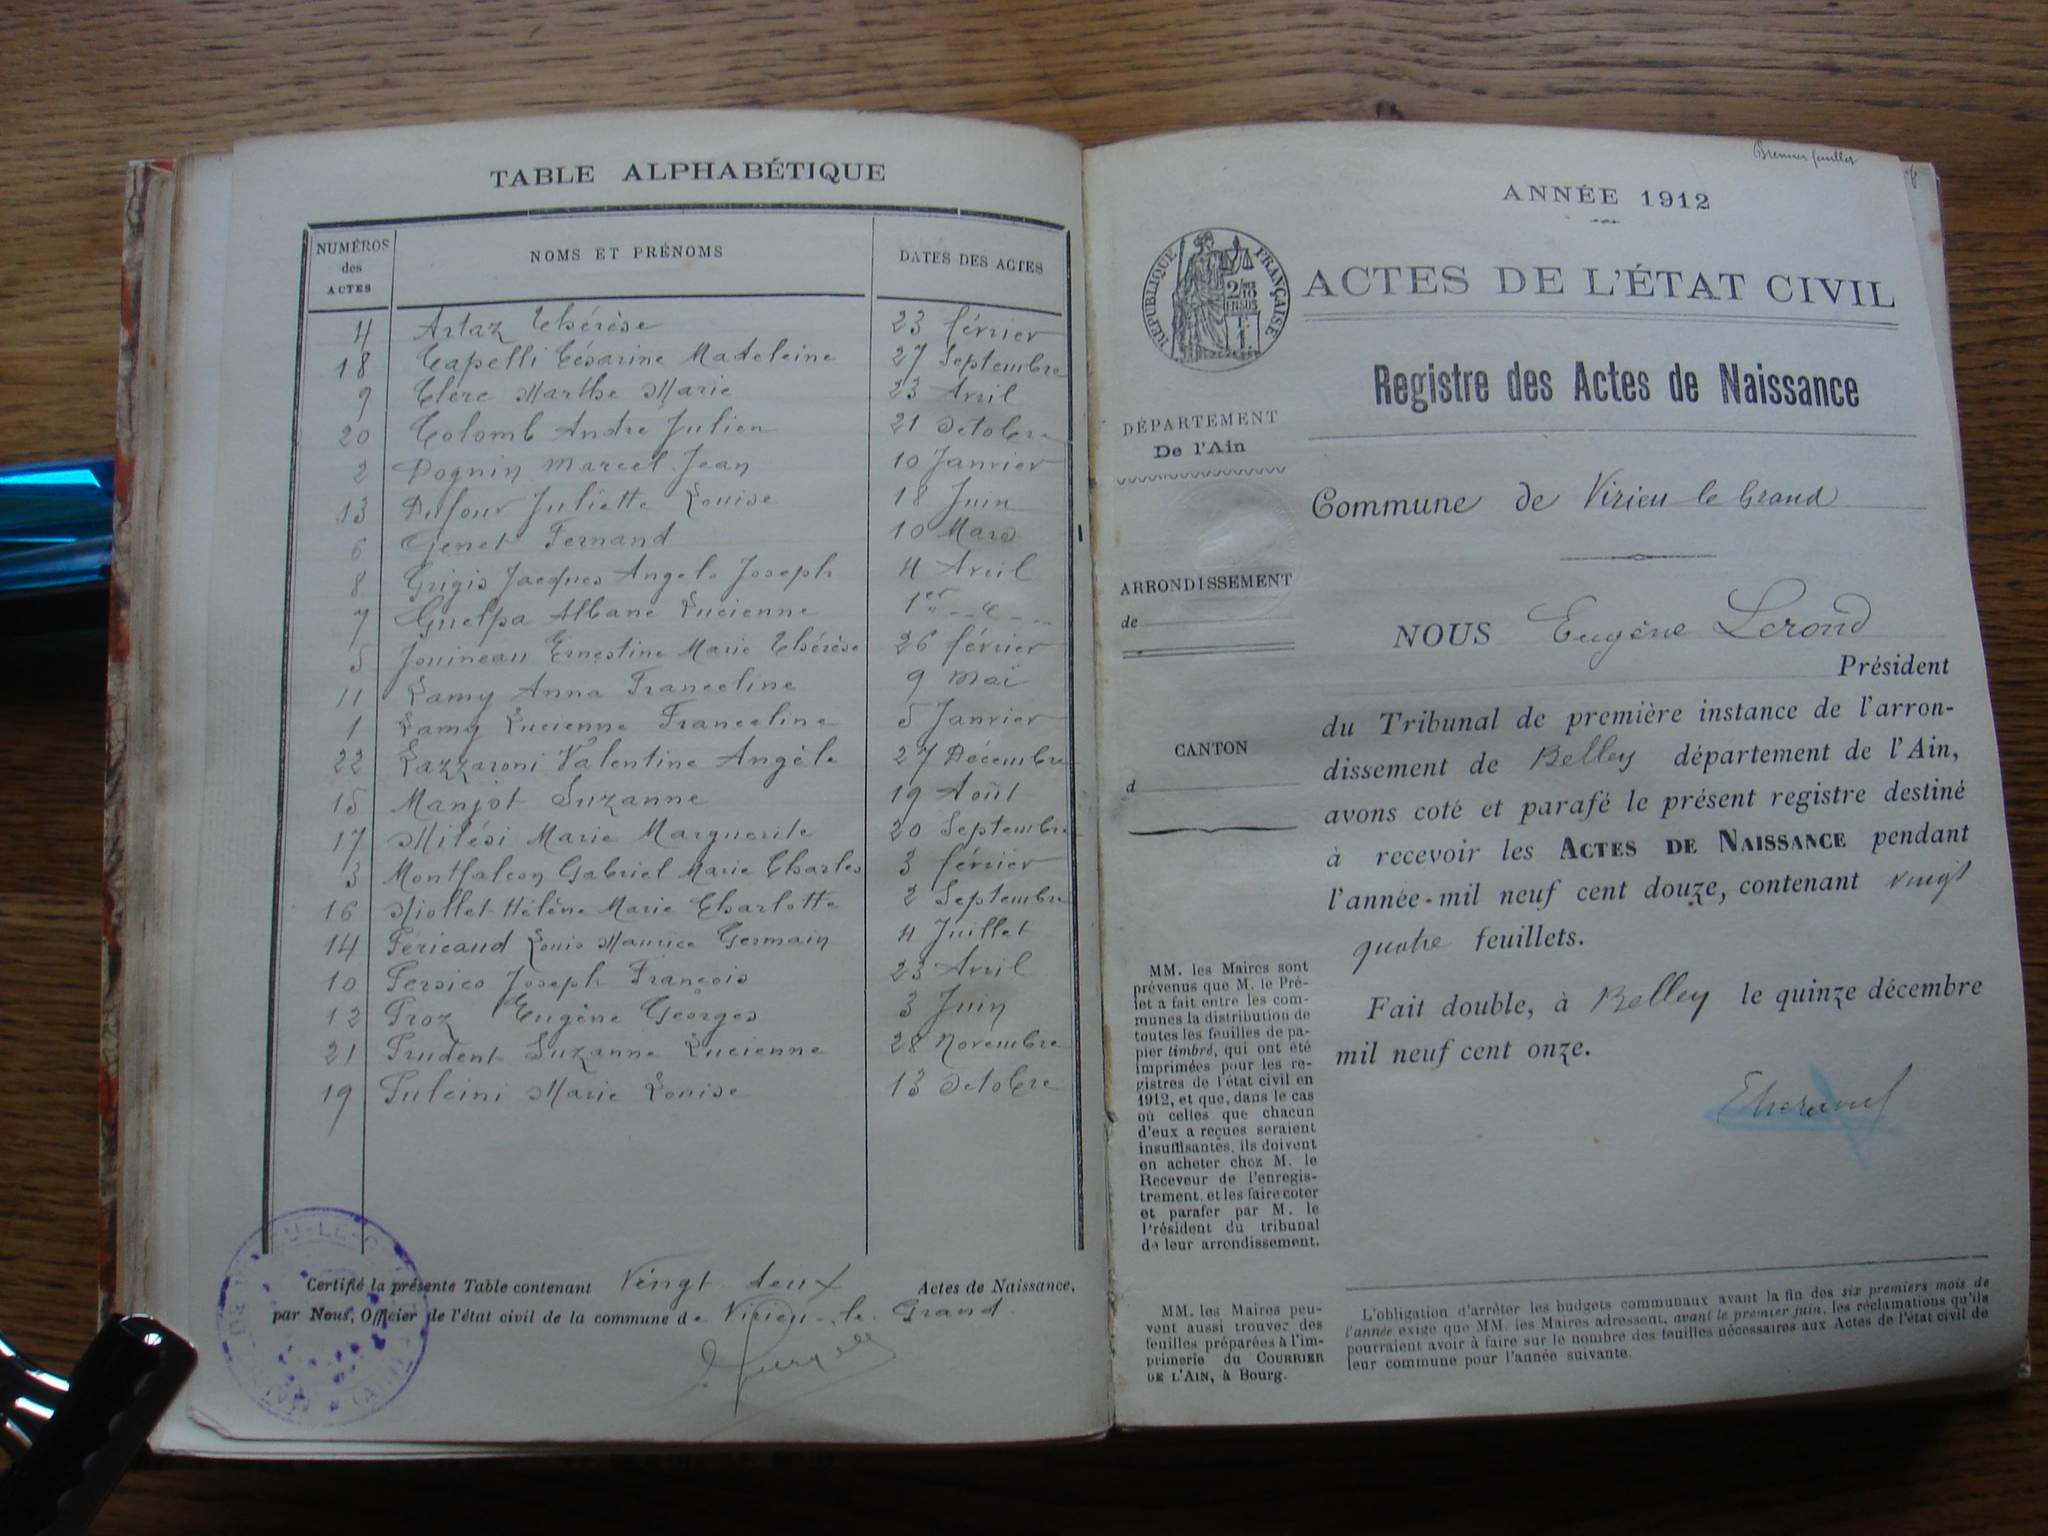 TABLE ALPHABÉTIQUE
NUMÉROS des ACTES NOMS ET PRÉNOMS DATES DES ACTES
4 Artaz Thérèse 23 février
18 Capelli Césarine Madeleine 27 Septembre
9 Clerc Marthe Marie 23 Avril
20 Colomb Andre Julien 21 Octobre
2 Dognin Marcel Jean 10 Janvier
13 Dufour Juliette Louise 18 Juin
6 Genet Fernand 10 Mars
8 Grigis Jacques Angelo Joseph 4 Avril
7 Guelpa Albane Lucienne 1er
5 Jouineau Ernestine Marie Thérèse 26 février
11 Lamy Anna Franceline 9 Mai
1 Lamy Lucienne Franceline 5 Janvier
22 Lazzaroni Valentine Angèle 27 Décembre
15 Manjot Suzanne 19 Août
17 Milési Marie Marguerite 20 Septembre
3 Montfalcon Gabriel Marie Charles 3 février
16 Niollet Hélène Marie Charlotte 2 Septembre
14 Péricaud Louis Maurice Germain 4 Juillet
10 Persico Joseph François 23 Avril
12 Proz Eugène Georges 3 Juin
21 Prudent Suzanne Lucienne 28 Novembre
19 Pulcini Marie Louise 13 Octobre
Certifié la présente Table contenant Vingt deux Actes de Naissance,
par Nous, Officier de l'état civil de la commune de Virieu-le-Grand
Premier feuillet
ANNÉE 1912
RÉPUBLIQUE FRANÇAISE
ACTES DE L'ÉTAT CIVIL
Registre des Actes de Naissance
DÉPARTEMENT
De l'Ain
Commune de Virieu le Grand
ARRONDISSEMENT
de
NOUS Eugène Lerond
Président
du Tribunal de première instance de l'arron-
dissement de Belley département de l'Ain,
avons coté et parafé le présent registre destiné
à recevoir les ACTES DE NAISSANCE pendant
l'année mil neuf cent douze, contenant vingt
quatre feuillets.
Fait double, à Belley le quinze décembre
mil neuf cent onze.
CANTON
d
MM. les Maires sont
prévenus que M. le Pré-
fet a fait entre les com-
munes la distribution de
toutes les feuilles de pa-
pier timbré, qui ont été
imprimées pour les re-
gistres de l'état civil en
1912, et que, dans le cas
où celles que chacun
d'eux a reçues seraient
insuffisantes, ils doivent
en acheter chez M. le
Receveur de l'enregis-
trement, et les faire coter
et parafer par M. le
Président du tribunal
de leur arrondissement.
MM. les Maires peu-
vent aussi trouver des
feuilles préparées à l'im-
primerie du COURRIER
DE L'AIN, à Bourg.
L'obligation d'arrêter les budgets communaux avant la fin des six premiers mois de
l'année exige que MM. les Maires adressent, avant le premier juin, les réclamations qu'ils
pourraient avoir à faire sur le nombre des feuilles nécessaires aux Actes de l'état civil de
leur commune pour l'année suivante.